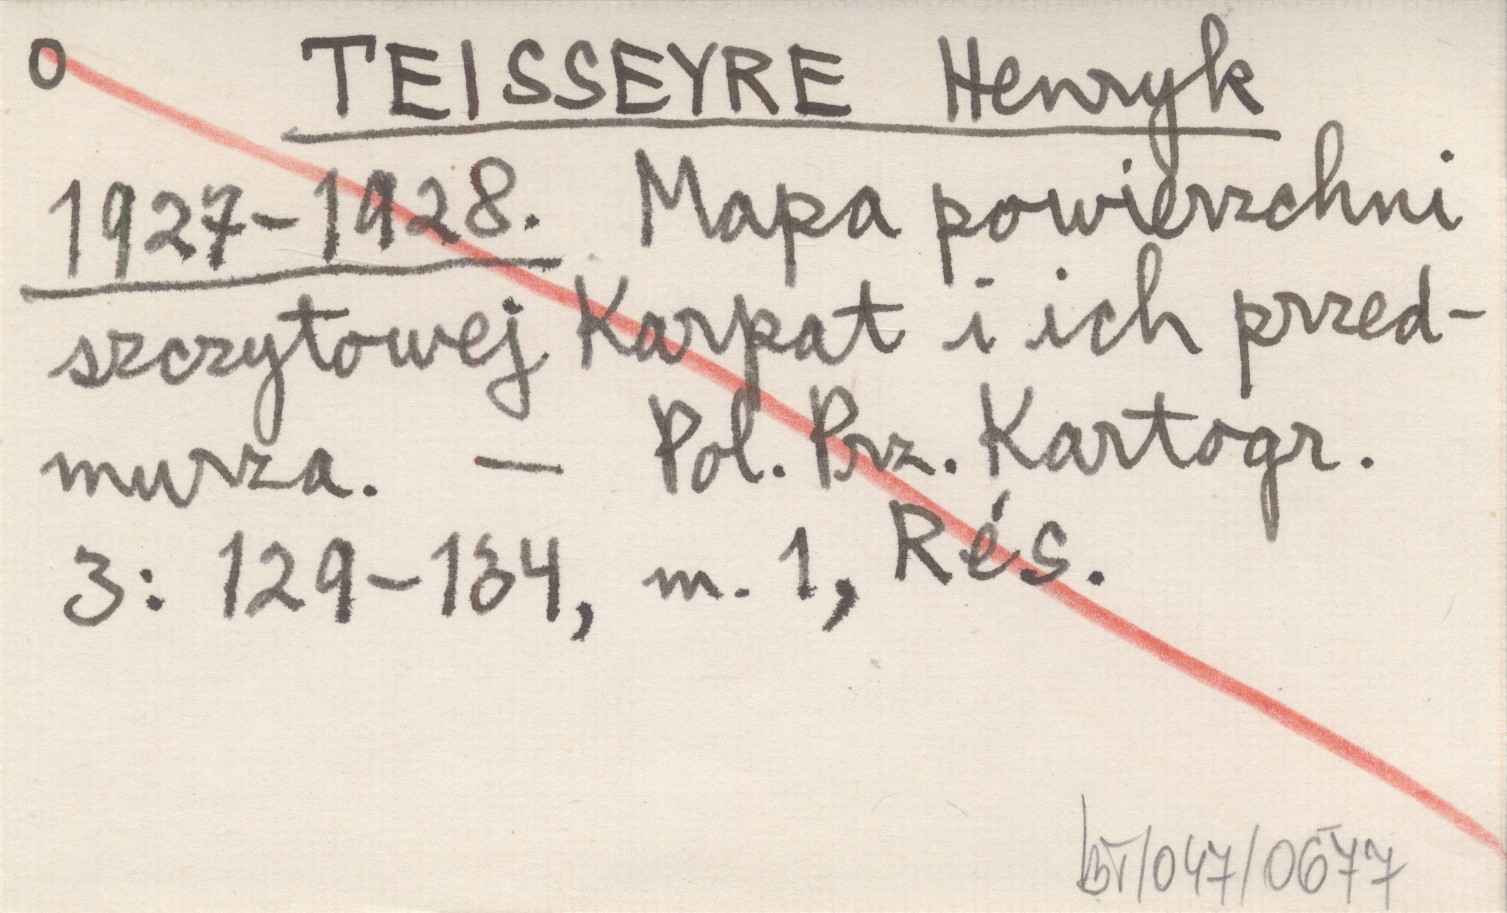 O TEISSEYRE Henryk
1927-1928. Mapa powierzchni
szczytowej Karpat i ich przed-
murza. — Pol. Prz. Kartogr.
3: 129-134, m. 1, Rés.
/047/0677